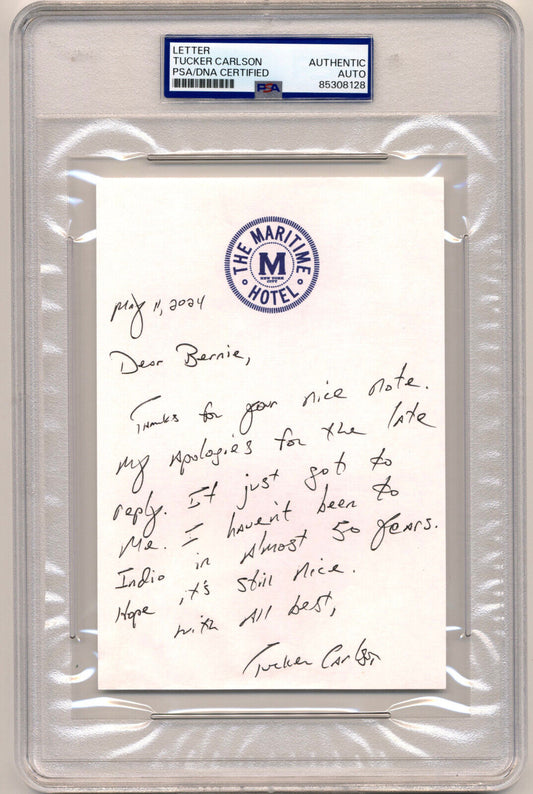 LETTER
TUCKER CARLSON
PSA/DNA CERTIFIED
AUTHENTIC
AUTO
85308128
PSA
THE MARITIME
M
NEW YORK
CITY
HOTEL
May 11, 2024
Dear Bernie,
Thanks for your nice note.
My apologies for the late
reply. It just got to
me. I haven't been to
Indio in almost 50 years.
Hope it's still nice.
with all best,
Tucker Carlson